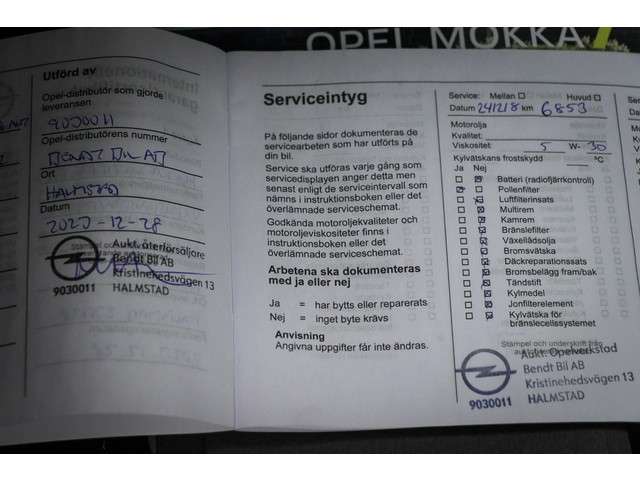 OPEL MOKKA
Utförd av
Opel-distributör som gjorde
leveransen
9030011
Opel-distributörens nummer
BENDT BIL AB
Ort
HALMSTAD
Datum
2020-12-28
Aukt. återförsäljare
Bendt Bil AB
Kristinehedsvägen 13
9030011 HALMSTAD
Serviceintyg
På följande sidor dokumenteras de
servicearbeten som har utförts på
din bil.
Service ska utföras varje gång som
servicedisplayen anger detta men
senast enligt de serviceintervall som
nämns i instruktionsboken eller det
överlämnade serviceschemat.
Godkända motoroljekvaliteter och
motoroljeviskositeter finns i
instruktionsboken eller det
överlämnade serviceschemat.
Arbetena ska dokumenteras
med ja eller nej
Ja = har bytts eller reparerats
Nej = inget byte krävs
Anvisning
Angivna uppgifter får inte ändras.
Service: Mellan ☐ Huvud ☐
Datum 241218 km 6853
Motorolja
Kvalitet:
Viskositet 5 W- 30
Kylvätskans frostskydd °C
Ja Nej
Batteri (radiofjärrkontroll)
Pollenfilter
Luftfilterinsats
Multirem
Kamrem
Bränslefilter
Växellådsolja
Bromsvätska
Däckreparationssats
Bromsbelägg fram/bak
Tändstift
Kylmedel
Jonfilterelement
Kylvätska för
bränslecellssystemet
Stämpel och underskrift från
Aukt. Opelverkstad
Bendt Bil AB
Kristinehedsvägen 13
9030011 HALMSTAD